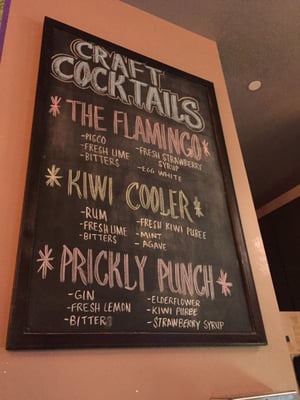 CRAFT
COCKTAILS
THE FLAMINGO
- PISCO
- FRESH LIME
- BITTERS
- FRESH STRAWBERRY
SYRUP
- EGG WHITE
KIWI COOLER
- RUM
- FRESH LIME
- BITTERS
- FRESH KIWI PUREE
- MINT
- AGAVE
PRICKLY PUNCH
- GIN
- FRESH LEMON
- BITTER
- ELDERFLOWER
- KIWI PUREE
- STRAWBERRY SYRUP